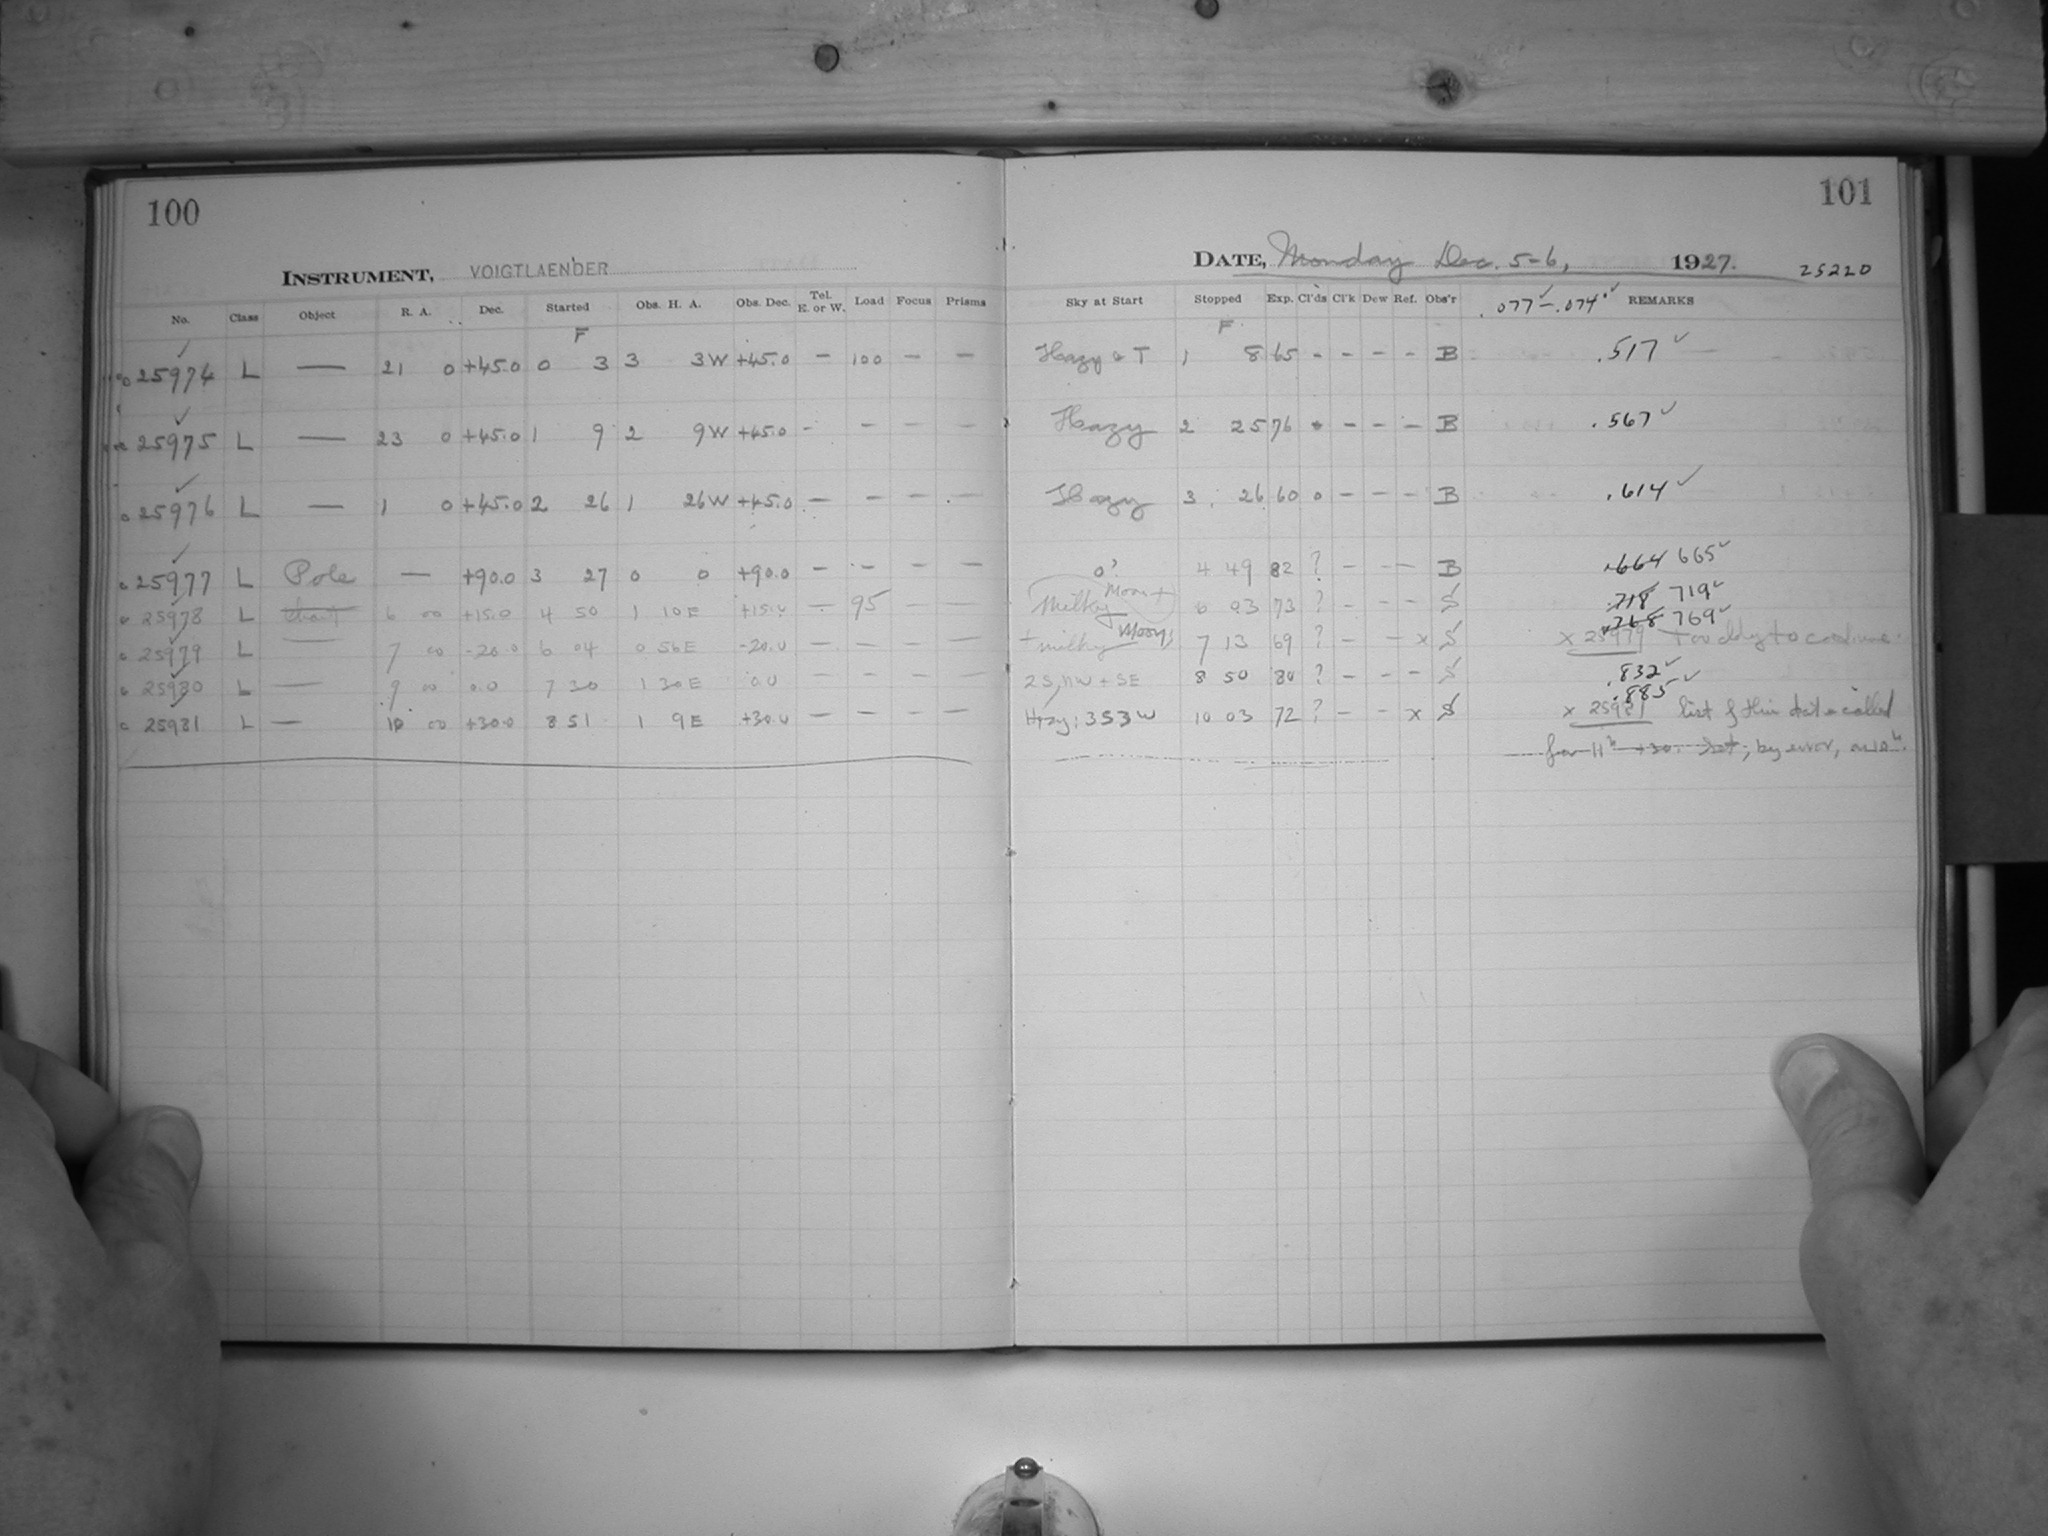 100
INSTRUMENT, VOIGTLAENDER
No. Class Object R. A. Dec. Started Obs. H. A. Obs. Dec. Tel. E. or W. Load Focus Prisms
F
25974 L — 21 0 +45.0 0 3 3 3W +45.0 — 100 — —
25975 L — 23 0 +45.0 1 9 2 9W +45.0 - — — —
25976 L — 1 0 +45.0 2 26 1 26W +45.0 — — — —
25977 L Pole — +90.0 3 27 0 0 +90.0 — — — —
25978 L 6 00 +15.0 4 50 1 10E +15.0 — 95 — —
25979 L — 7 00 -20.0 6 04 0 56E -20.0 — — — —
25980 L — 9 00 0.0 7 30 1 30E 0.0 — — — —
25981 L — 10 00 +30.0 8 51 1 9E +30.0 — — — —
101
DATE, Monday Dec. 5-6, 1927. 25220
Sky at Start Stopped Exp. Cl'ds Cl'k Dew Ref. Obs'r .077 — .074 REMARKS
F
Hazy & T 1 8 65 - - - - B .517
Hazy 2 25 76 - - - B .567
Hazy 3 26 60 0 - - - B .614
0? 4 49 82 ? - - B .664 665
Milky Moon + 6 03 73 ? - - - S .718 719
+ milky Moon 7 13 69 ? - - x S .768 769
x 25979 Too dewy to continue.
2S, NW + SE 8 50 80 ? - - - S .832
Hazy; 3S3W 10 03 72 ? - - x S .885
x 25981 list of this date called
for 11h +30. Set, by error, on 10h.